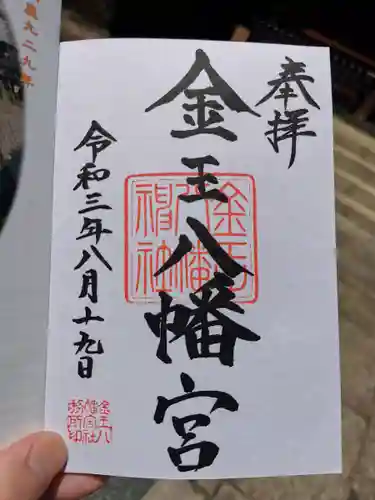 奉拝
金王八幡宮
令和三年八月十九日
金王八幡神社
金王八
幡宮社
務所印
九二九年